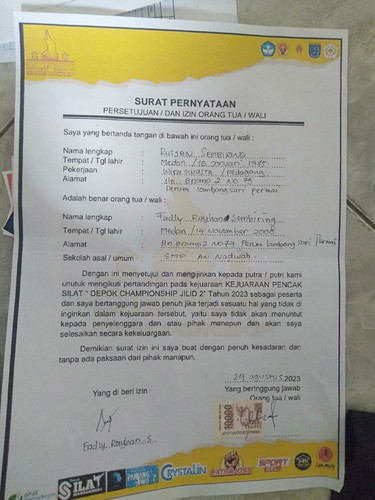 SURAT PERNYATAAN
PERSETUJUAN / DAN IZIN ORANG TUA / WALI
Saya yang bertanda tangan di bawah ini orang tua / wali :
Nama lengkap : RUSSAN SEMBIRING
Tempat / Tgl lahir : Medan / 16 Januari 1975
Pekerjaan : Wiraswasta / Pedagang
Alamat : Jln Bromo 2 No 79
Perum lambang sari permai
Adalah benar orang tua / wali :
Nama lengkap : Fadly Rayhan Sembiring
Tempat / Tgl lahir : Medan / 14 November 2008
Alamat : Jln Bromo 2 No 79 Perum lambang sari Permai
Sekolah asal / umum : SMP AN Nadwah
Dengan ini menyetujui dan mengijinkan kepada putra / putri kami
untuk mengikuti pertandingan pada kejuaraan KEJUARAAN PENCAK
SILAT " DEPOK CHAMPIONSHIP JILID 2" Tahun 2023 sebagai peserta
dan saya bertanggung jawab penuh jika terjadi sesuatu hal yang tidak di
inginkan dalam kejuaraan tersebut, yaitu saya tidak akan menuntut
kepada penyelenggara dan atau pihak manapun dan akan saya
selesaikan secara kekeluargaan.
Demikian surat izin ini saya buat dengan penuh kesadaran dan
tanpa ada paksaan dari pihak manapun.
29 agustus 2023
Yang di beri izin
Yang bertnggung jawab
Orang tua / wali
10000
Fadly Rayhan. S.
SILAT
CRYSTALIN
SPORT